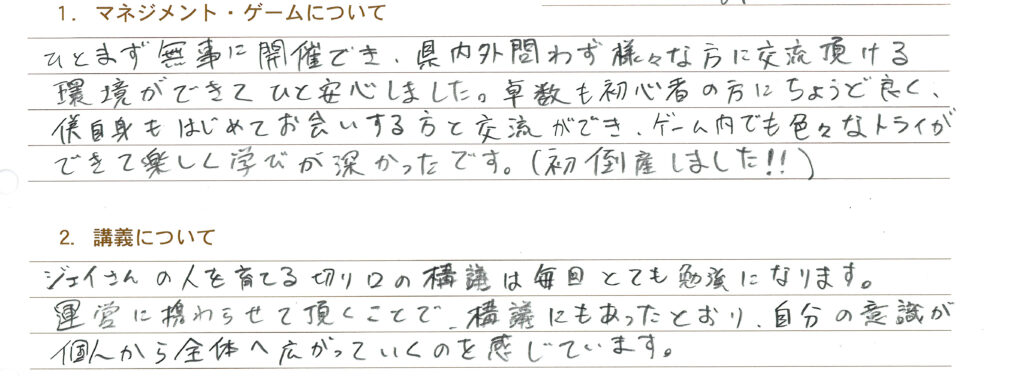 1. マネジメント・ゲームについて
ひとまず無事に開催でき、県内外問わず様々な方に交流頂ける
環境ができてひと安心しました。卓数も初心者の方にちょうど良く、
僕自身もはじめてお会いする方と交流ができ、ゲーム内でも色々なトライが
できて楽しく学びが深かったです。(初倒産しました!!)
2. 講義について
ジェイさんの人を育てる切り口の構議は毎回とても勉強になります。
運営に携わらせて頂くことで、構議にもあったとおり、自分の意識が
個人から全体へ広がっていくのを感じています。